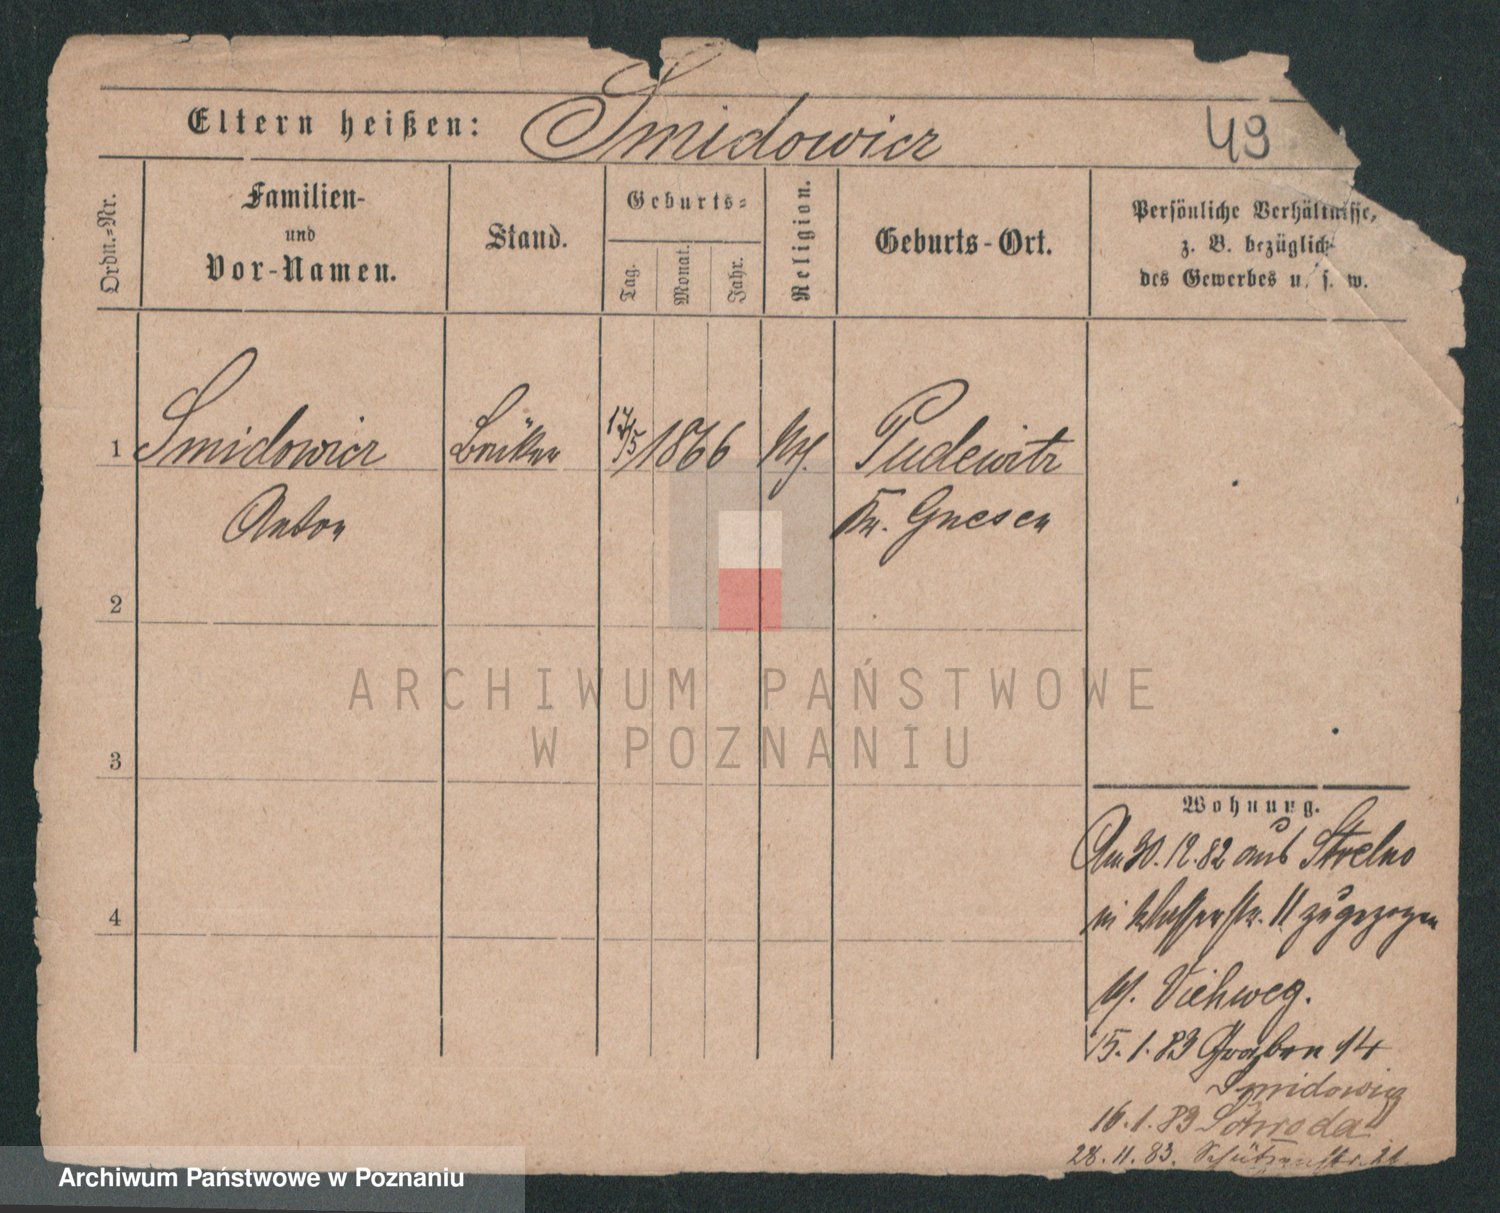 Eltern heißen: Smidowicz
49
Ordn.-Nr.
Familien-
und
Vor-Namen.
Stand.
Geburts-
Tag.
Monat.
Jahr.
Religion.
Geburts-Ort.
Persönliche Verhältnisse,
z. B. bezüglich
des Gewerbes u. s. w.
1 Smidowicz 17/5 1866 Pudewitz
Anton Kr. Gnesen
2
3
4
Wohnung.
Am 30.12.82 aus Strelno
in Wasserstr. 11 zugezogen
b/. Viehweg.
15.1.83 Graben 14
Smidowicz
16.1.83 Schroda
28.11.83. Schützenstr. 21
ARCHIWUM PAŃSTWOWE
W POZNANIU
Archiwum Państwowe w Poznaniu